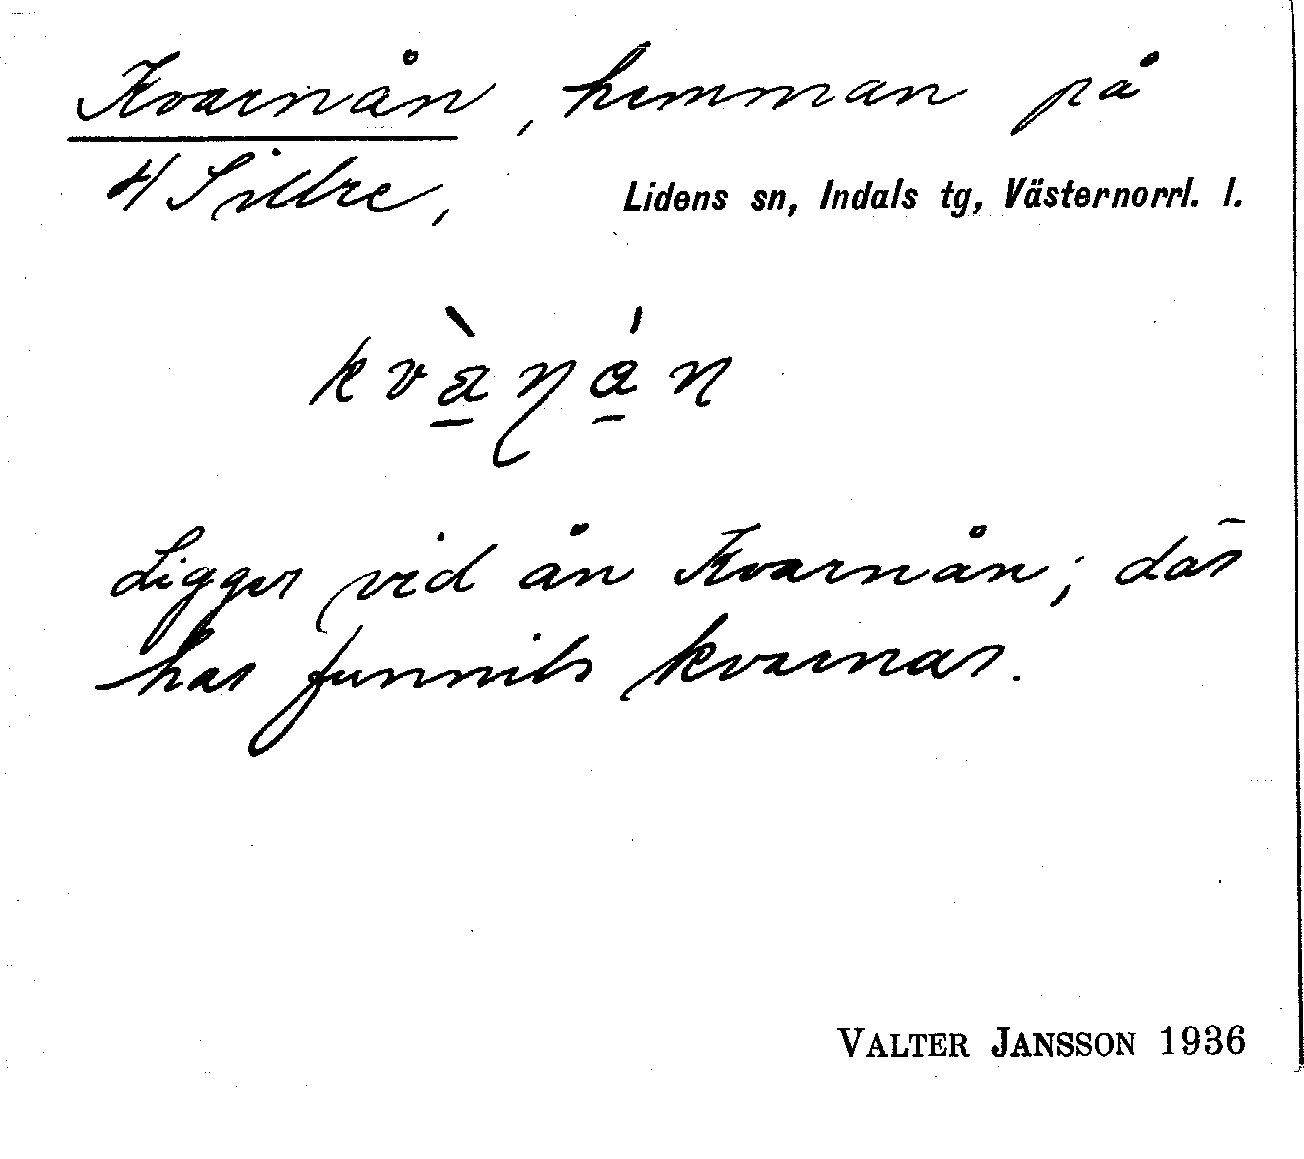 Kvarnån, hemman på
4 Sillre, Lidens sn, Indals tg, Västernorrl. l.
kvànán
Ligger vid ån Kvarnån; där
har funnits kvarnar.
VALTER JANSSON 1936